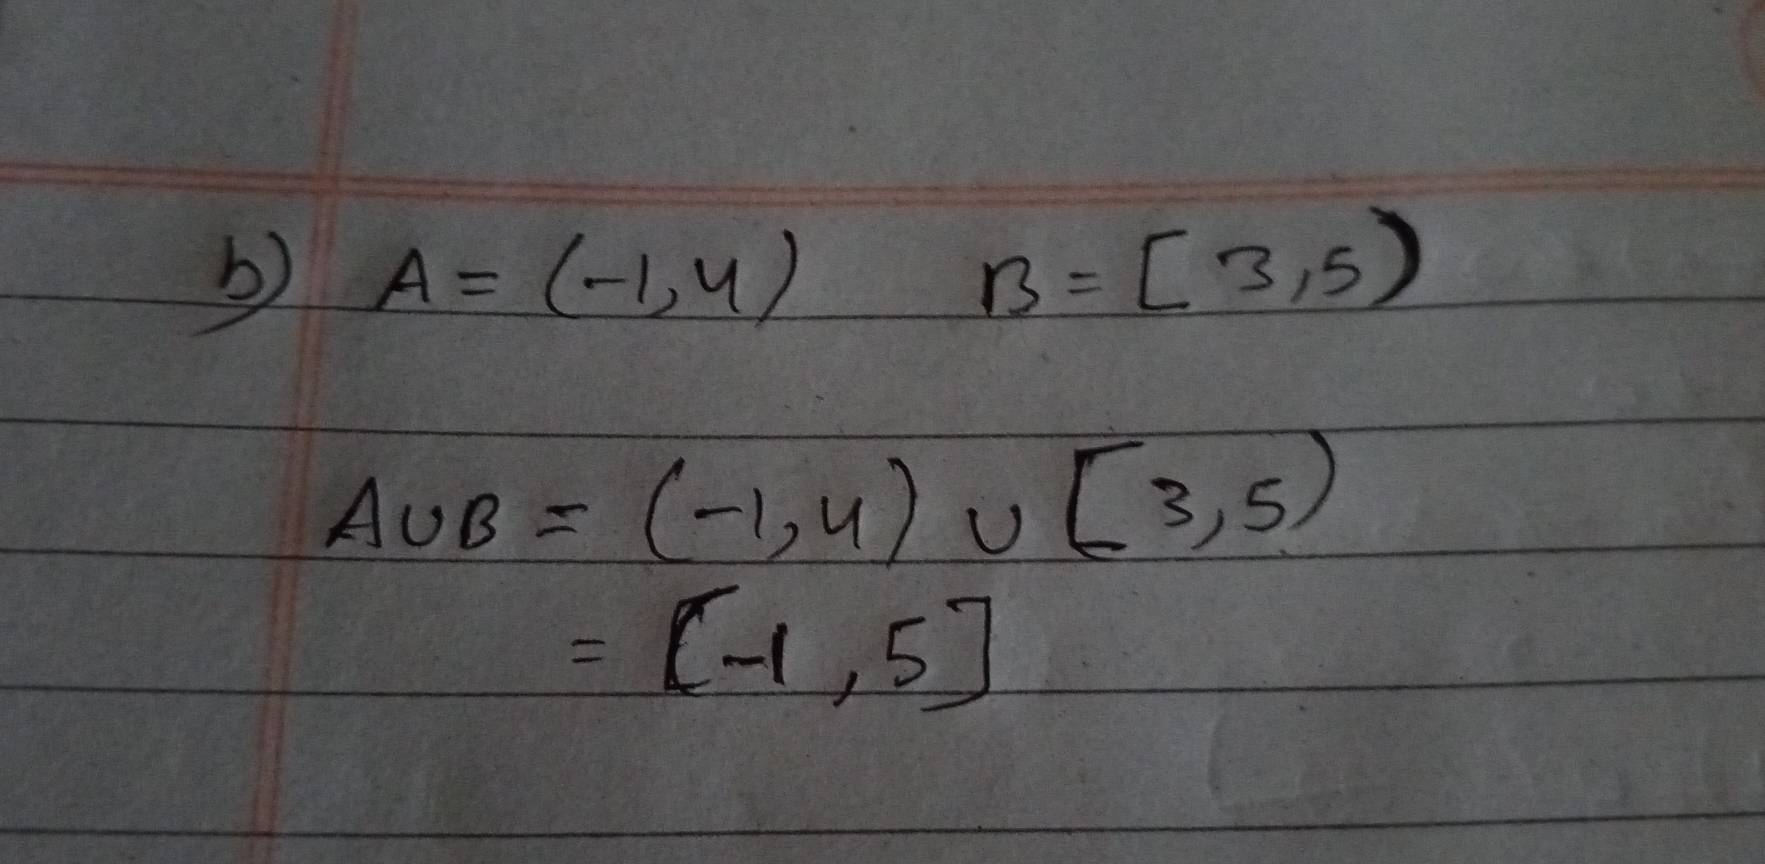 b) A = (-1,4) B = [3,5)
A∪B = (-1,4) ∪ [3,5)
= [-1,5]